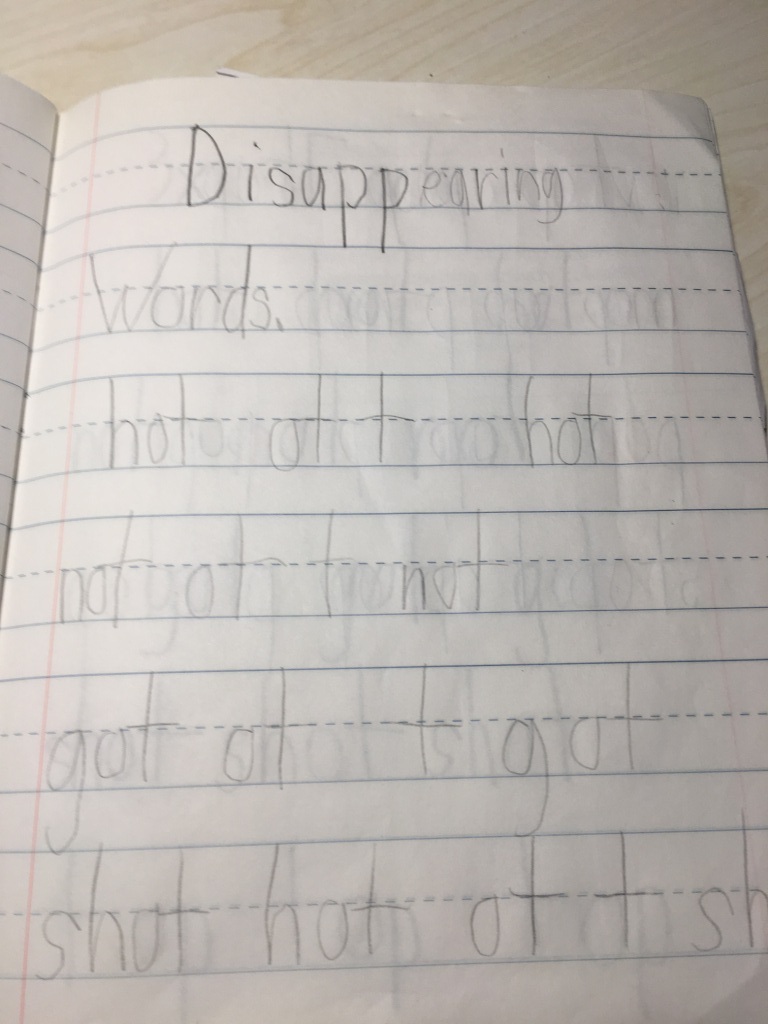 Disappearing
Words.
hot ot t hot
not ot t not
got ot t got
shot hot ot t sh